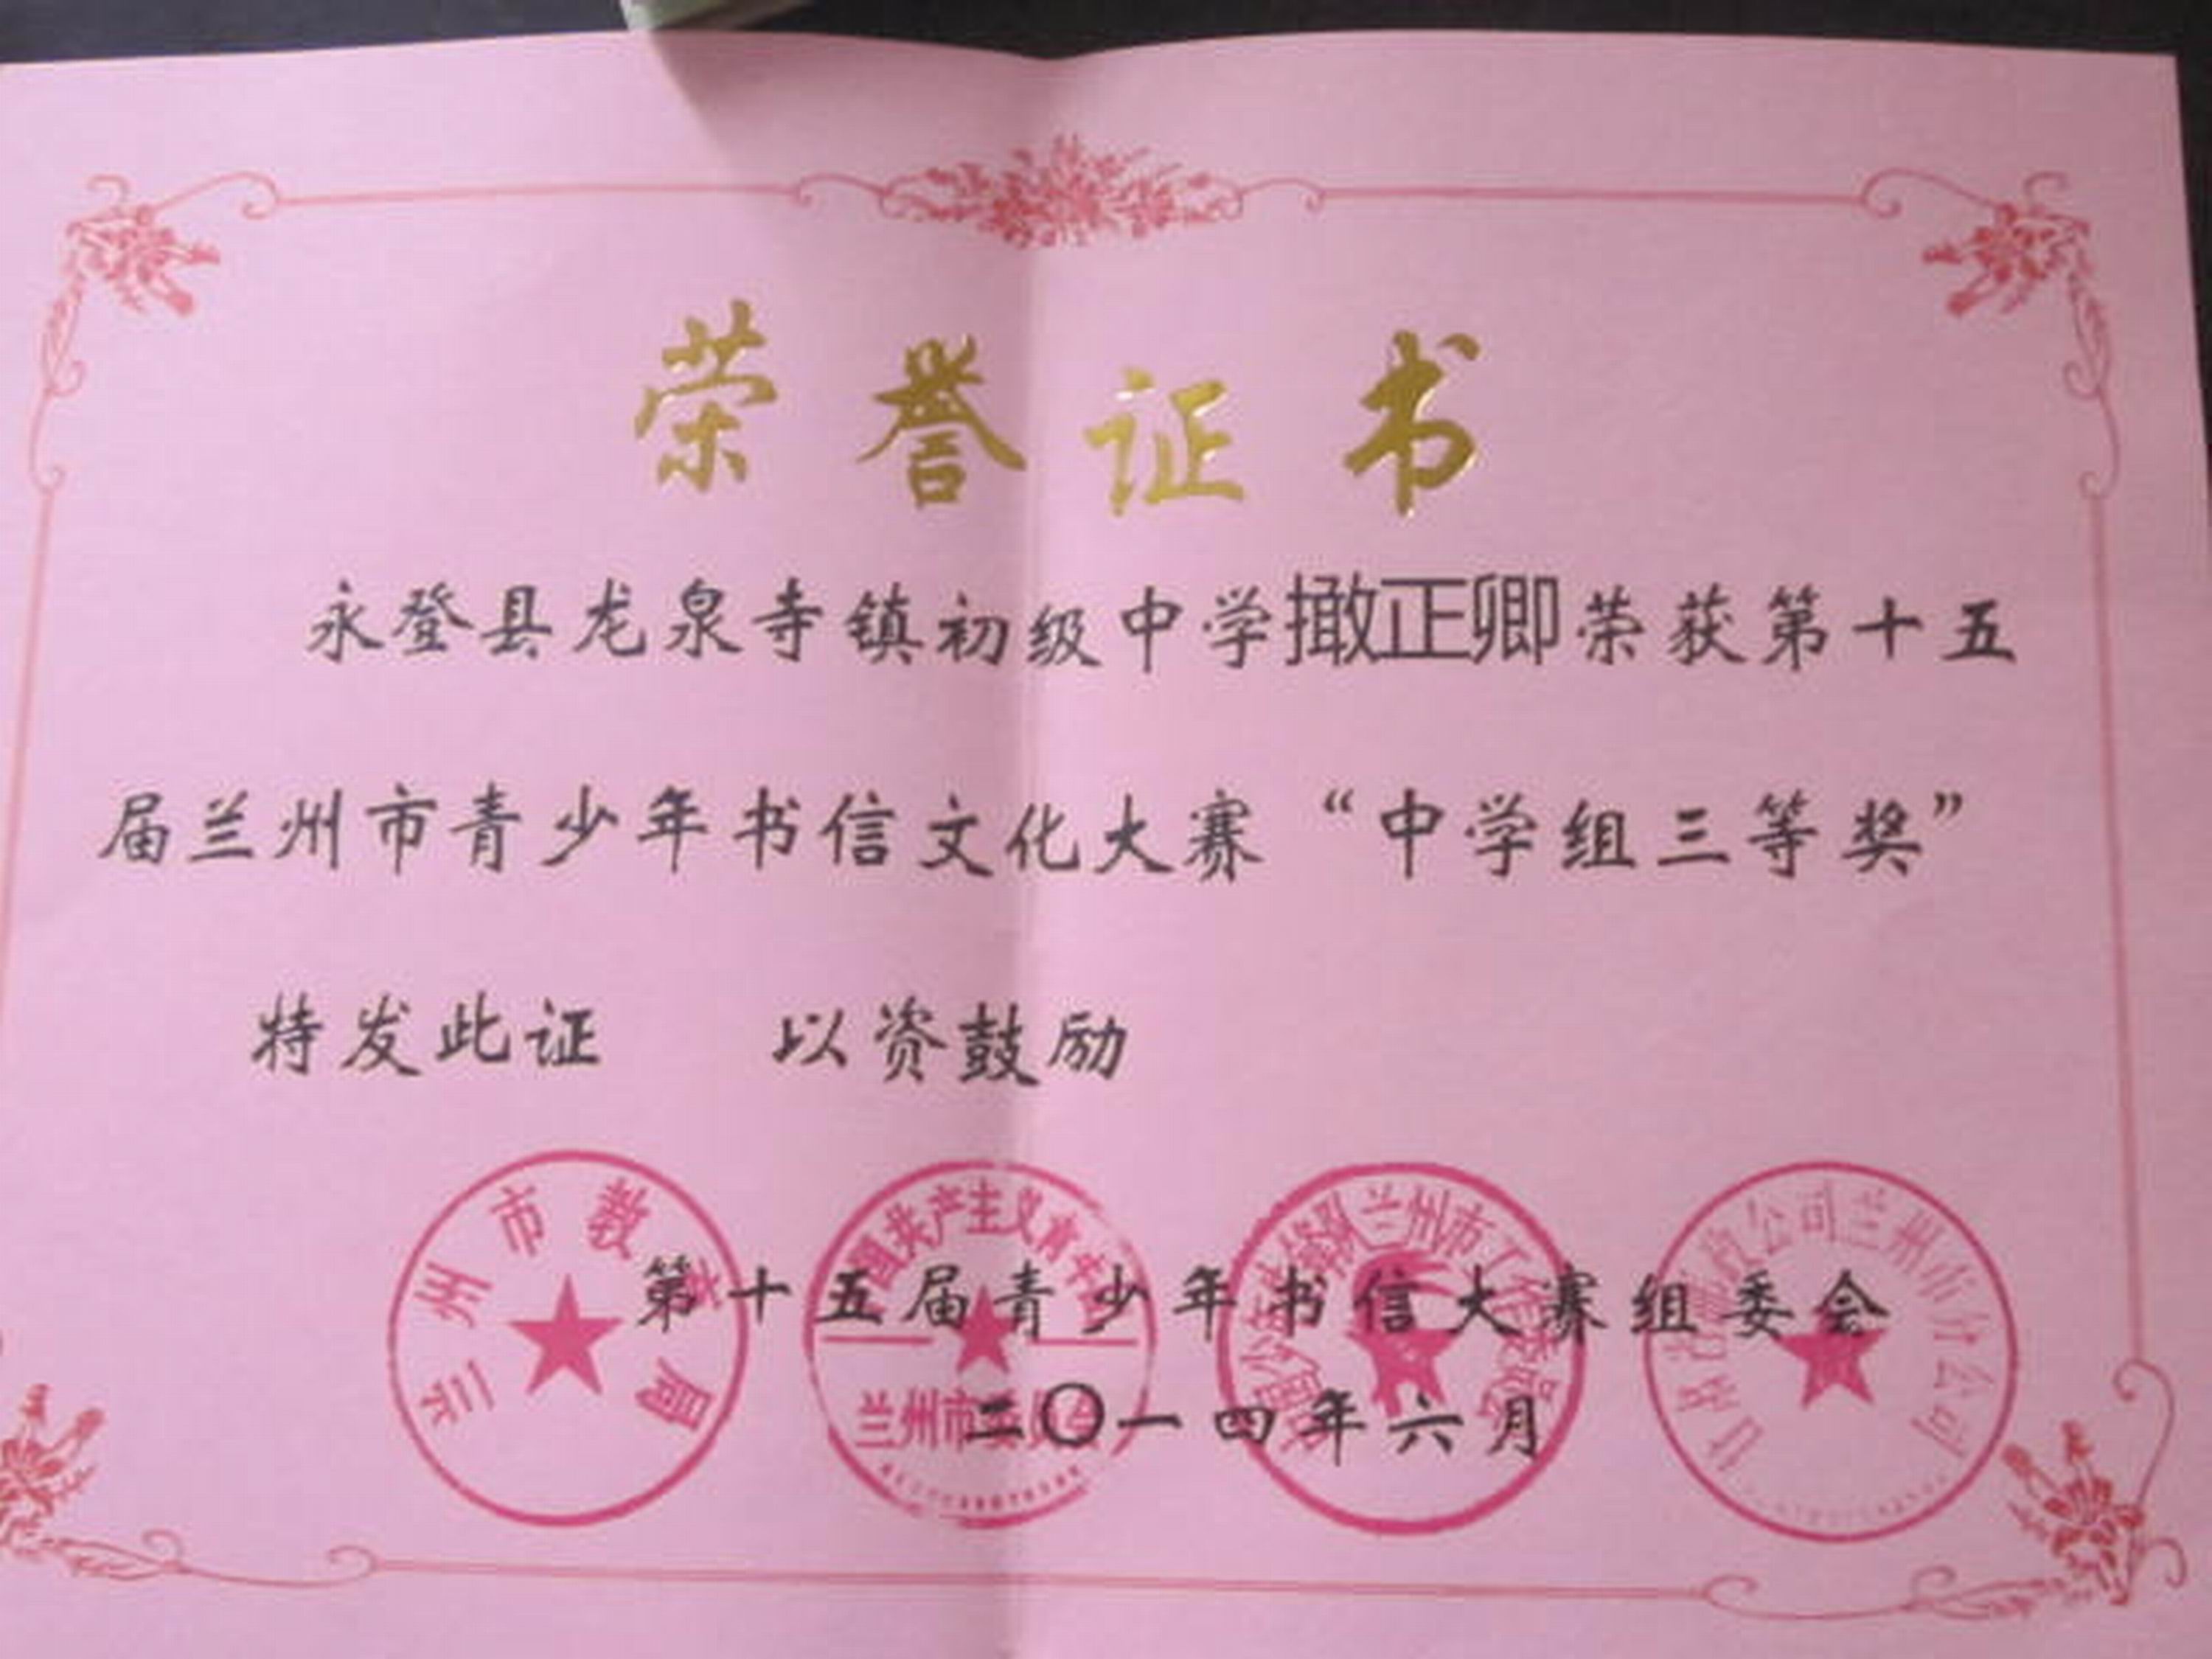 荣誉证书
永登县龙泉寺镇初级中学撖正卿荣获第十五
届兰州市青少年书信文化大赛“中学组三等奖”
特发此证 以资鼓励
第十五届青少年书信大赛组委会
二〇一四年六月
兰州市教育局
中国共产主义青年团
兰州市委员会
中国少年先锋队兰州市工作委员会
甘肃省邮政公司兰州市分公司